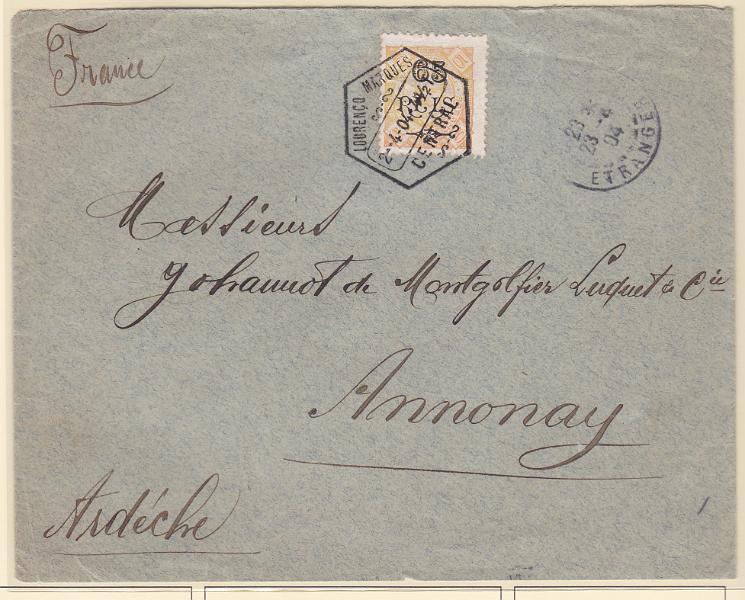 France
65
RÉIS
LOURENÇO MARQUES
CENTRAL
23
23 -4
04
ETRANGER
Messieurs
Johannot de Montgolfier Luquet & Cie
Annonay
Ardèche